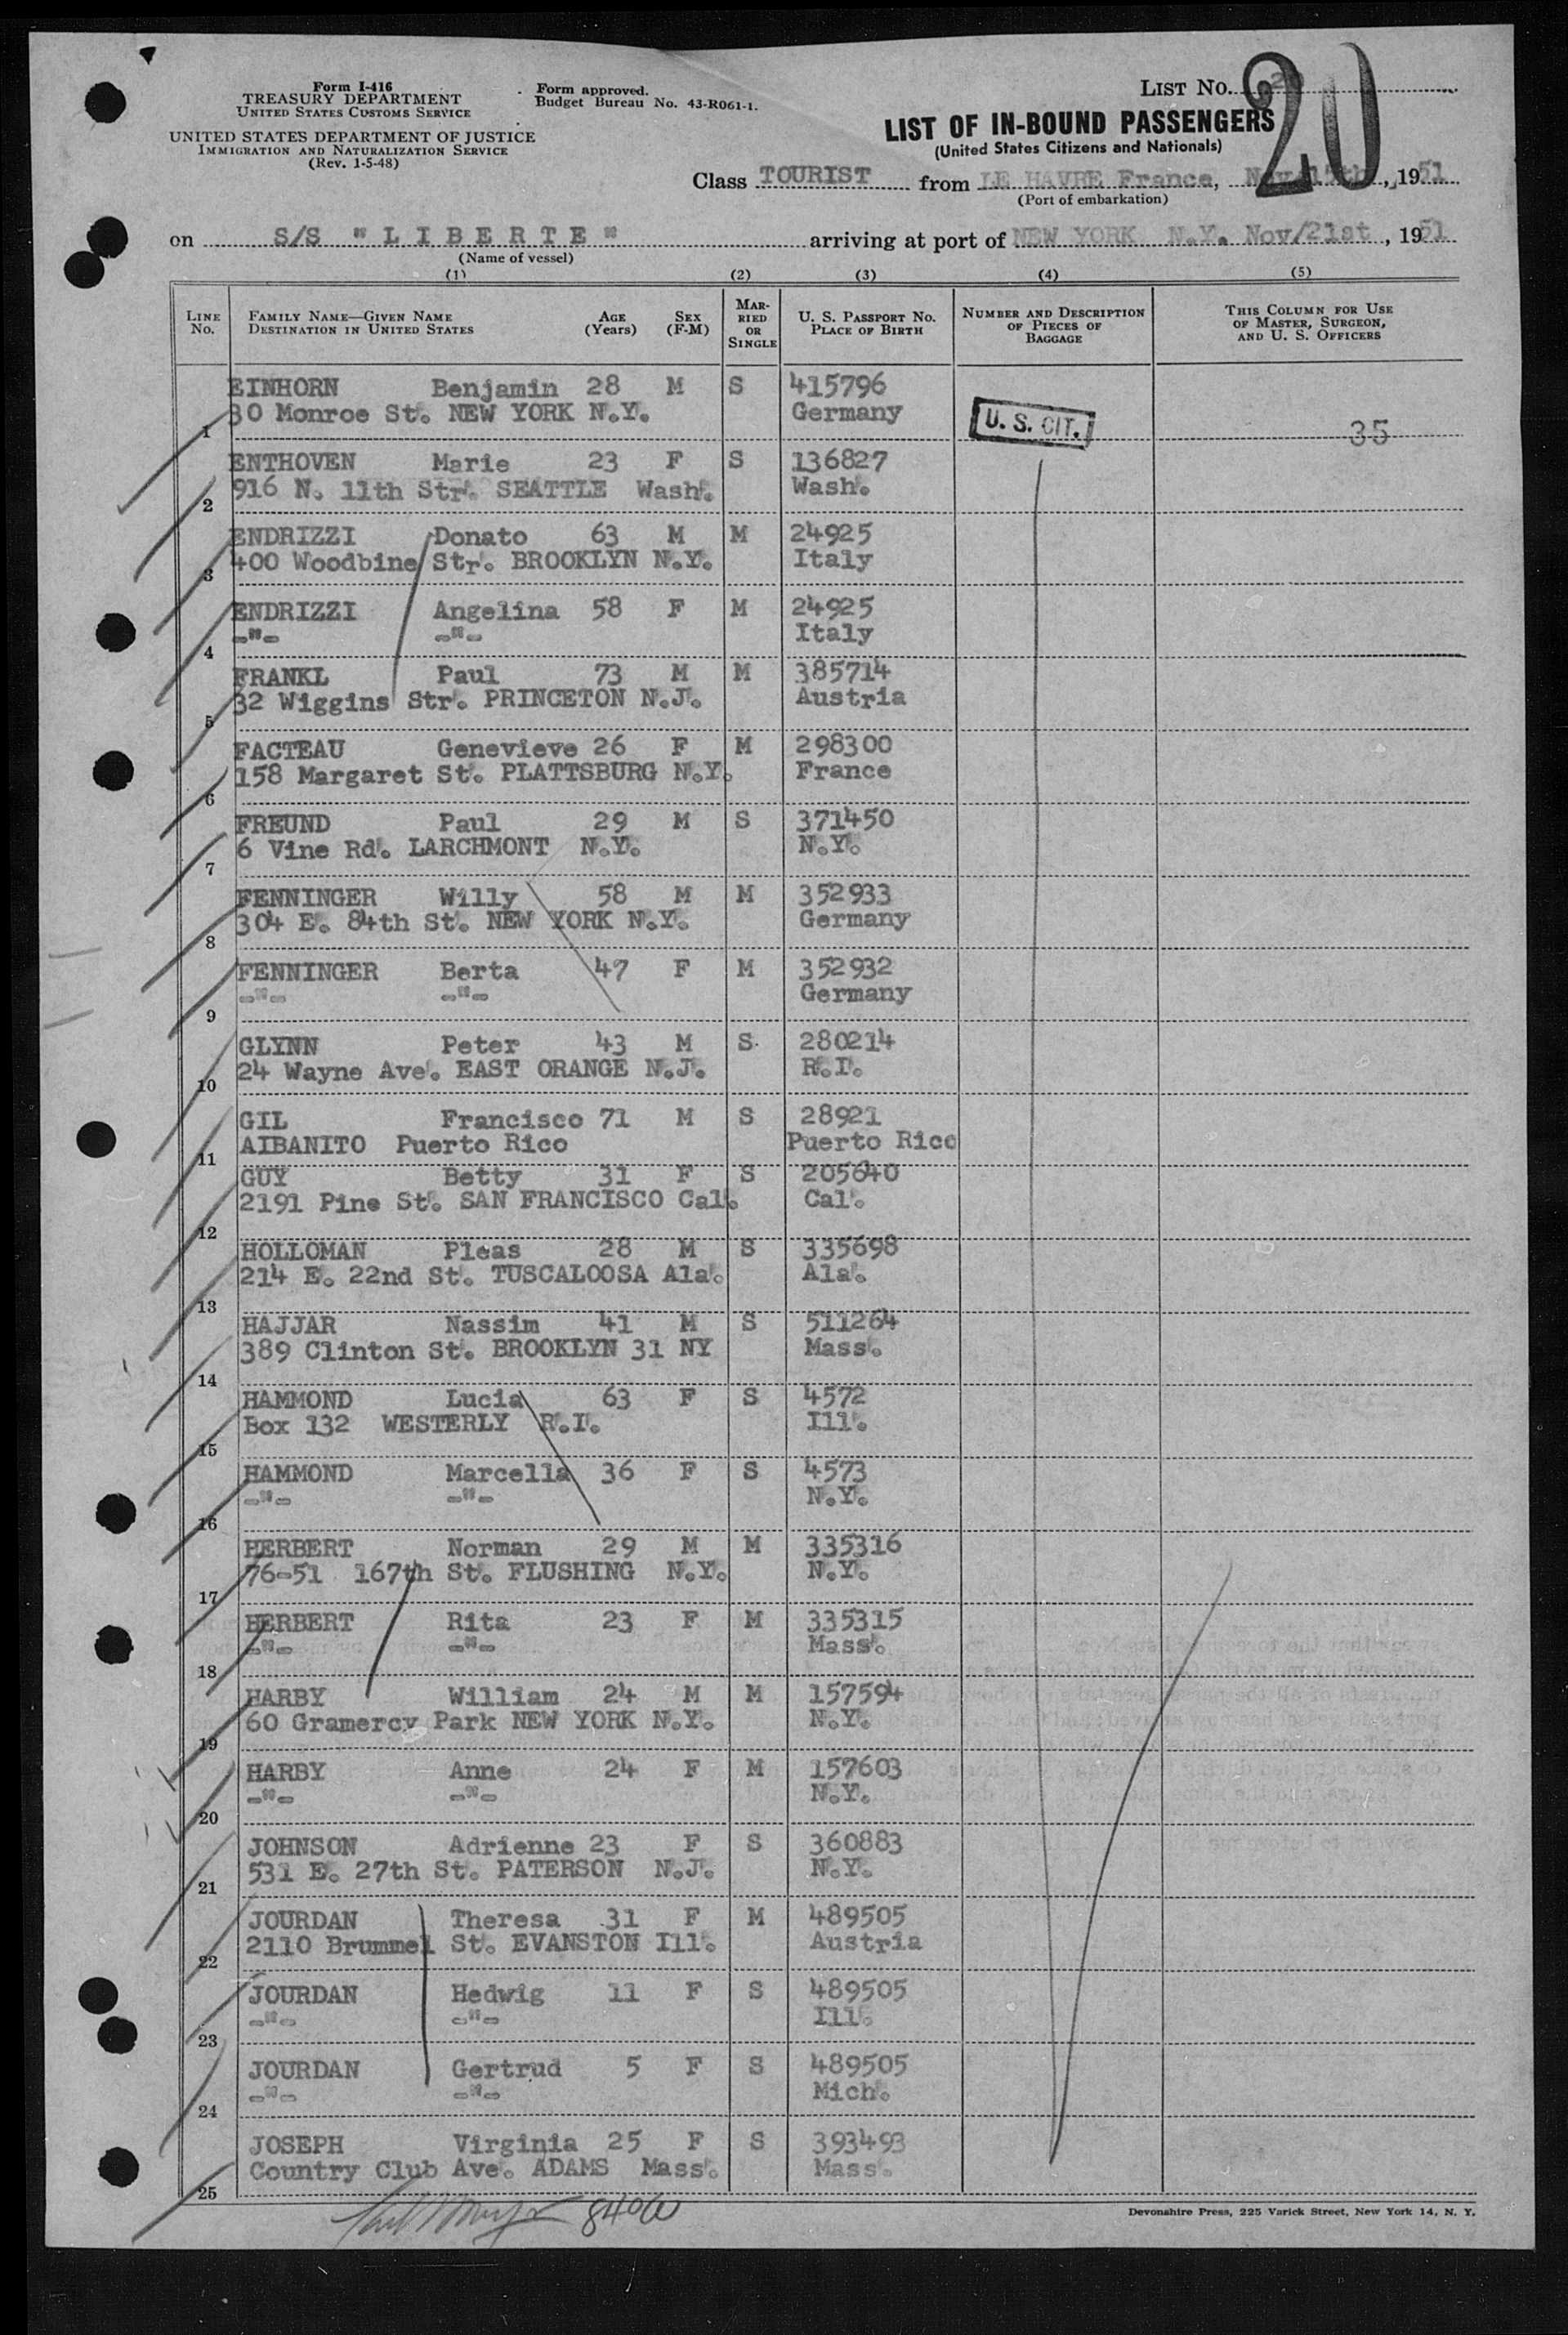 Form I-416
TREASURY DEPARTMENT
UNITED STATES CUSTOMS SERVICE
UNITED STATES DEPARTMENT OF JUSTICE
IMMIGRATION AND NATURALIZATION SERVICE
(Rev. 1-5-48)
Form approved.
Budget Bureau No. 43-R061-1.
LIST NO. 20
LIST OF IN-BOUND PASSENGERS
(United States Citizens and Nationals)
Class TOURIST from LE HAVRE France, Nov/15th, 1951
(Port of embarkation)
on S/S "LIBERTE" arriving at port of NEW YORK N.Y. Nov/21st, 1951
(Name of vessel)
(1) (2) (3) (4) (5)
LINE NO. FAMILY NAME—GIVEN NAME DESTINATION IN UNITED STATES AGE (Years) SEX (F-M) MARRIED OR SINGLE U. S. PASSPORT NO. PLACE OF BIRTH NUMBER AND DESCRIPTION OF PIECES OF BAGGAGE THIS COLUMN FOR USE OF MASTER, SURGEON, AND U. S. OFFICERS
EINHORN Benjamin 28 M S 415796
1 30 Monroe St. NEW YORK N.Y. Germany U. S. CIT. 35
ENTHOVEN Marie 23 F S 136827
2 916 N. 11th Str. SEATTLE Wash. Wash.
ENDRIZZI Donato 63 M M 24925
3 400 Woodbine Str. BROOKLYN N.Y. Italy
ENDRIZZI Angelina 58 F M 24925
4 -"- -"- Italy
FRANKL Paul 73 M M 385714
5 32 Wiggins Str. PRINCETON N.J. Austria
FACTEAU Genevieve 26 F M 298300
6 158 Margaret St. PLATTSBURG N.Y. France
FREUND Paul 29 M S 371450
7 6 Vine Rd. LARCHMONT N.Y. N.Y.
FENNINGER Willy 58 M M 352933
8 304 E. 84th St. NEW YORK N.Y. Germany
FENNINGER Berta 47 F M 352932
9 -"- -"- Germany
GLYNN Peter 43 M S 280214
10 24 Wayne Ave. EAST ORANGE N.J. R.I.
GIL Francisco 71 M S 28921
11 AIBANITO Puerto Rico Puerto Rico
GUY Betty 31 F S 205640
12 2191 Pine St. SAN FRANCISCO Cal. Cal.
HOLLOMAN Pleas 28 M S 335698
13 214 E. 22nd St. TUSCALOOSA Ala. Ala.
HAJJAR Nassim 41 M S 511264
14 389 Clinton St. BROOKLYN 31 NY Mass.
HAMMOND Lucia 63 F S 4572
15 Box 132 WESTERLY R.I. Ill.
HAMMOND Marcella 36 F S 4573
16 -"- -"- N.Y.
HERBERT Norman 29 M M 335316
17 76-51 167th St. FLUSHING N.Y. N.Y.
HERBERT Rita 23 F M 335315
18 -"- -"- Mass.
HARBY William 24 M M 157594
19 60 Gramercy Park NEW YORK N.Y. N.Y.
HARBY Anne 24 F M 157603
20 -"- -"- N.Y.
JOHNSON Adrienne 23 F S 360883
21 531 E. 27th St. PATERSON N.J. N.Y.
JOURDAN Theresa 31 F M 489505
22 2110 Brummel St. EVANSTON Ill. Austria
JOURDAN Hedwig 11 F S 489505
23 -"- -"- Ill.
JOURDAN Gertrud 5 F S 489505
24 -"- -"- Mich.
JOSEPH Virginia 25 F S 393493
25 Country Club Ave. ADAMS Mass. Mass.
Devonshire Press, 225 Varick Street, New York 14, N. Y.